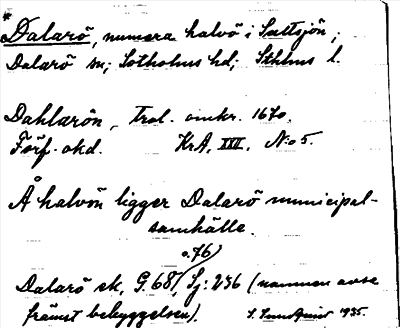 * Dalarö, numera halvö i Saltsjön;
Dalarö sn; Sotholms hd; Sthlms l.
Dahlarön, Trol. omkr. 1670.
Förf. okd. KrA. XXII. No 5.
Å halvön ligger Dalarö municipal-
samhälle.
o. 76)
Dalarö sk, G. 68, Sj: 236 (namnen avse
främst bebyggelsen). 1935.